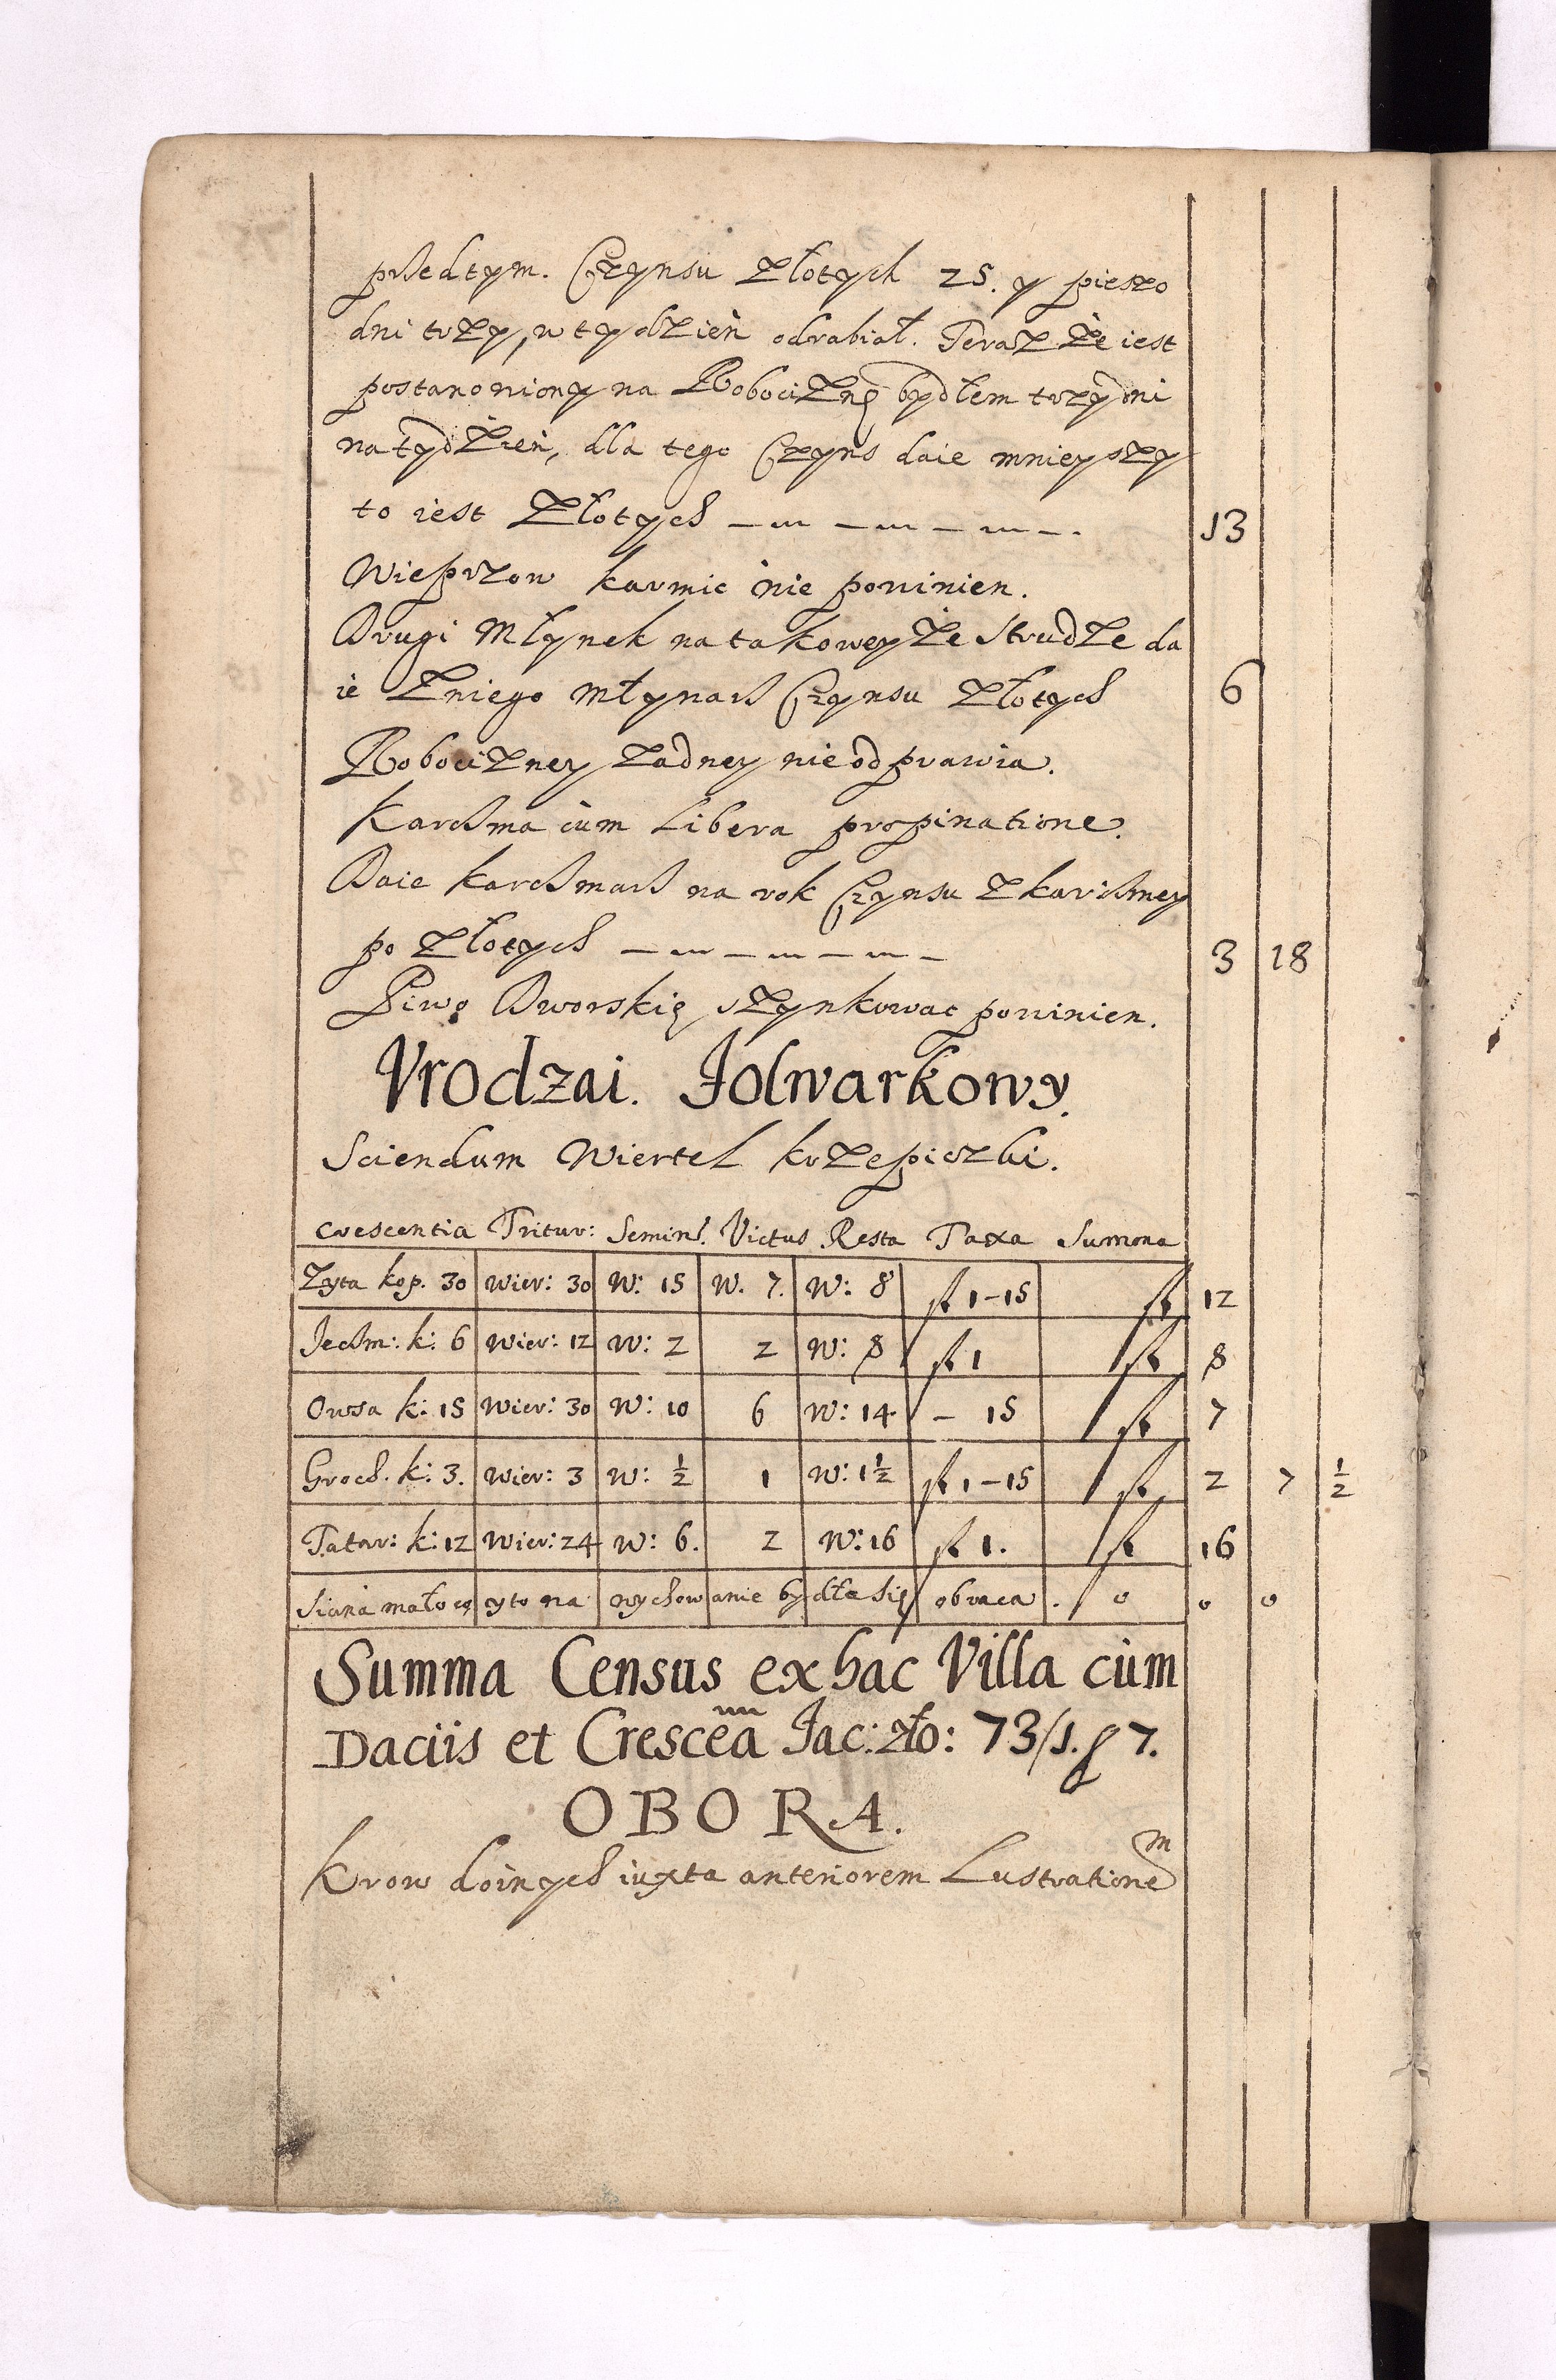 przedtym. Czynsu Złotych 25. y pieszo
dni trzy, w tydzień odrabiał. Teraz że iest
postanowiony na Robociznę bydłem trzy dni
na tydzień, dla tego Czyns daie mnieyszy
to iest Złotych — — — — 13
Wieprzow karmic nie powinien.
Drugi Młynek na takoweyże Strudze da
ie z niego Młynarz Czynsu Złotych 6
Robocizney żadney nie odprawia.
Karczma cum Libera propinatione.
Daie Karczmarz na rok Czynsu z karczmey
po Złotych — — — — 3 18
Piwo Dworskię szynkowac powinien.
Vrodzai. Folwarkowy.
Sciendum Wiertel krzepiczki.
Crescentia Tritur: Semin. Victus Resta Taxa Summa
Zyta kop. 30 Wier: 30 W: 15 W. 7. W: 8 fl 1–15 fl 12
Jeczm: k: 6 Wier: 12 W: 2 2 W: 8 fl 1 fl 8
Owsa k: 15 Wier: 30 W: 10 6 W: 14 – 15 fl 7
Groch. k: 3. Wier: 3 W: ½ 1 W: 1½ fl 1–15 fl 2 7 ½
Tatar: k: 12 Wier: 24 W: 6. 2 W: 16 fl 1. fl 16
Siana mało co y to na wychowanie bydła się obraca. 0 0 0
Summa Census ex hac Villa cùm
Daciis et Crescēa Fac: zło: 73/1. ƒ 7.
OBORA.
Krow doinych iuxta anteriorem Lustrationem